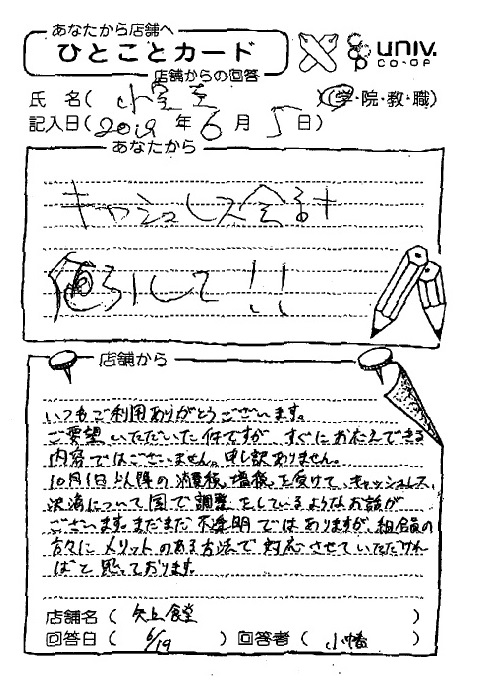 あなたから店舗へ
ひとことカード
店舗からの回答
univ.
CO-OP
氏 名( 小室圭 )(学・院・教・職)
記入日(2019 年 6 月 5 日)
あなたから
キャッシュレス会計
値引して!!
店舗から
いつもご利用ありがとうございます。
ご要望いただいた件ですが、すぐにお応えできる
内容ではございません。申し訳ありません。
10月1日以降の消費税増税を受けて、キャッシュレス
決済について国で調整をしているようなお話が
ございます。まだまだ不透明ではありますが、組合員の
方々にメリットのある方法で対応させていただけれ
ばと思っております。
店舗名( 矢上食堂 )
回答日( 6/19 )回答者( 小幡 )